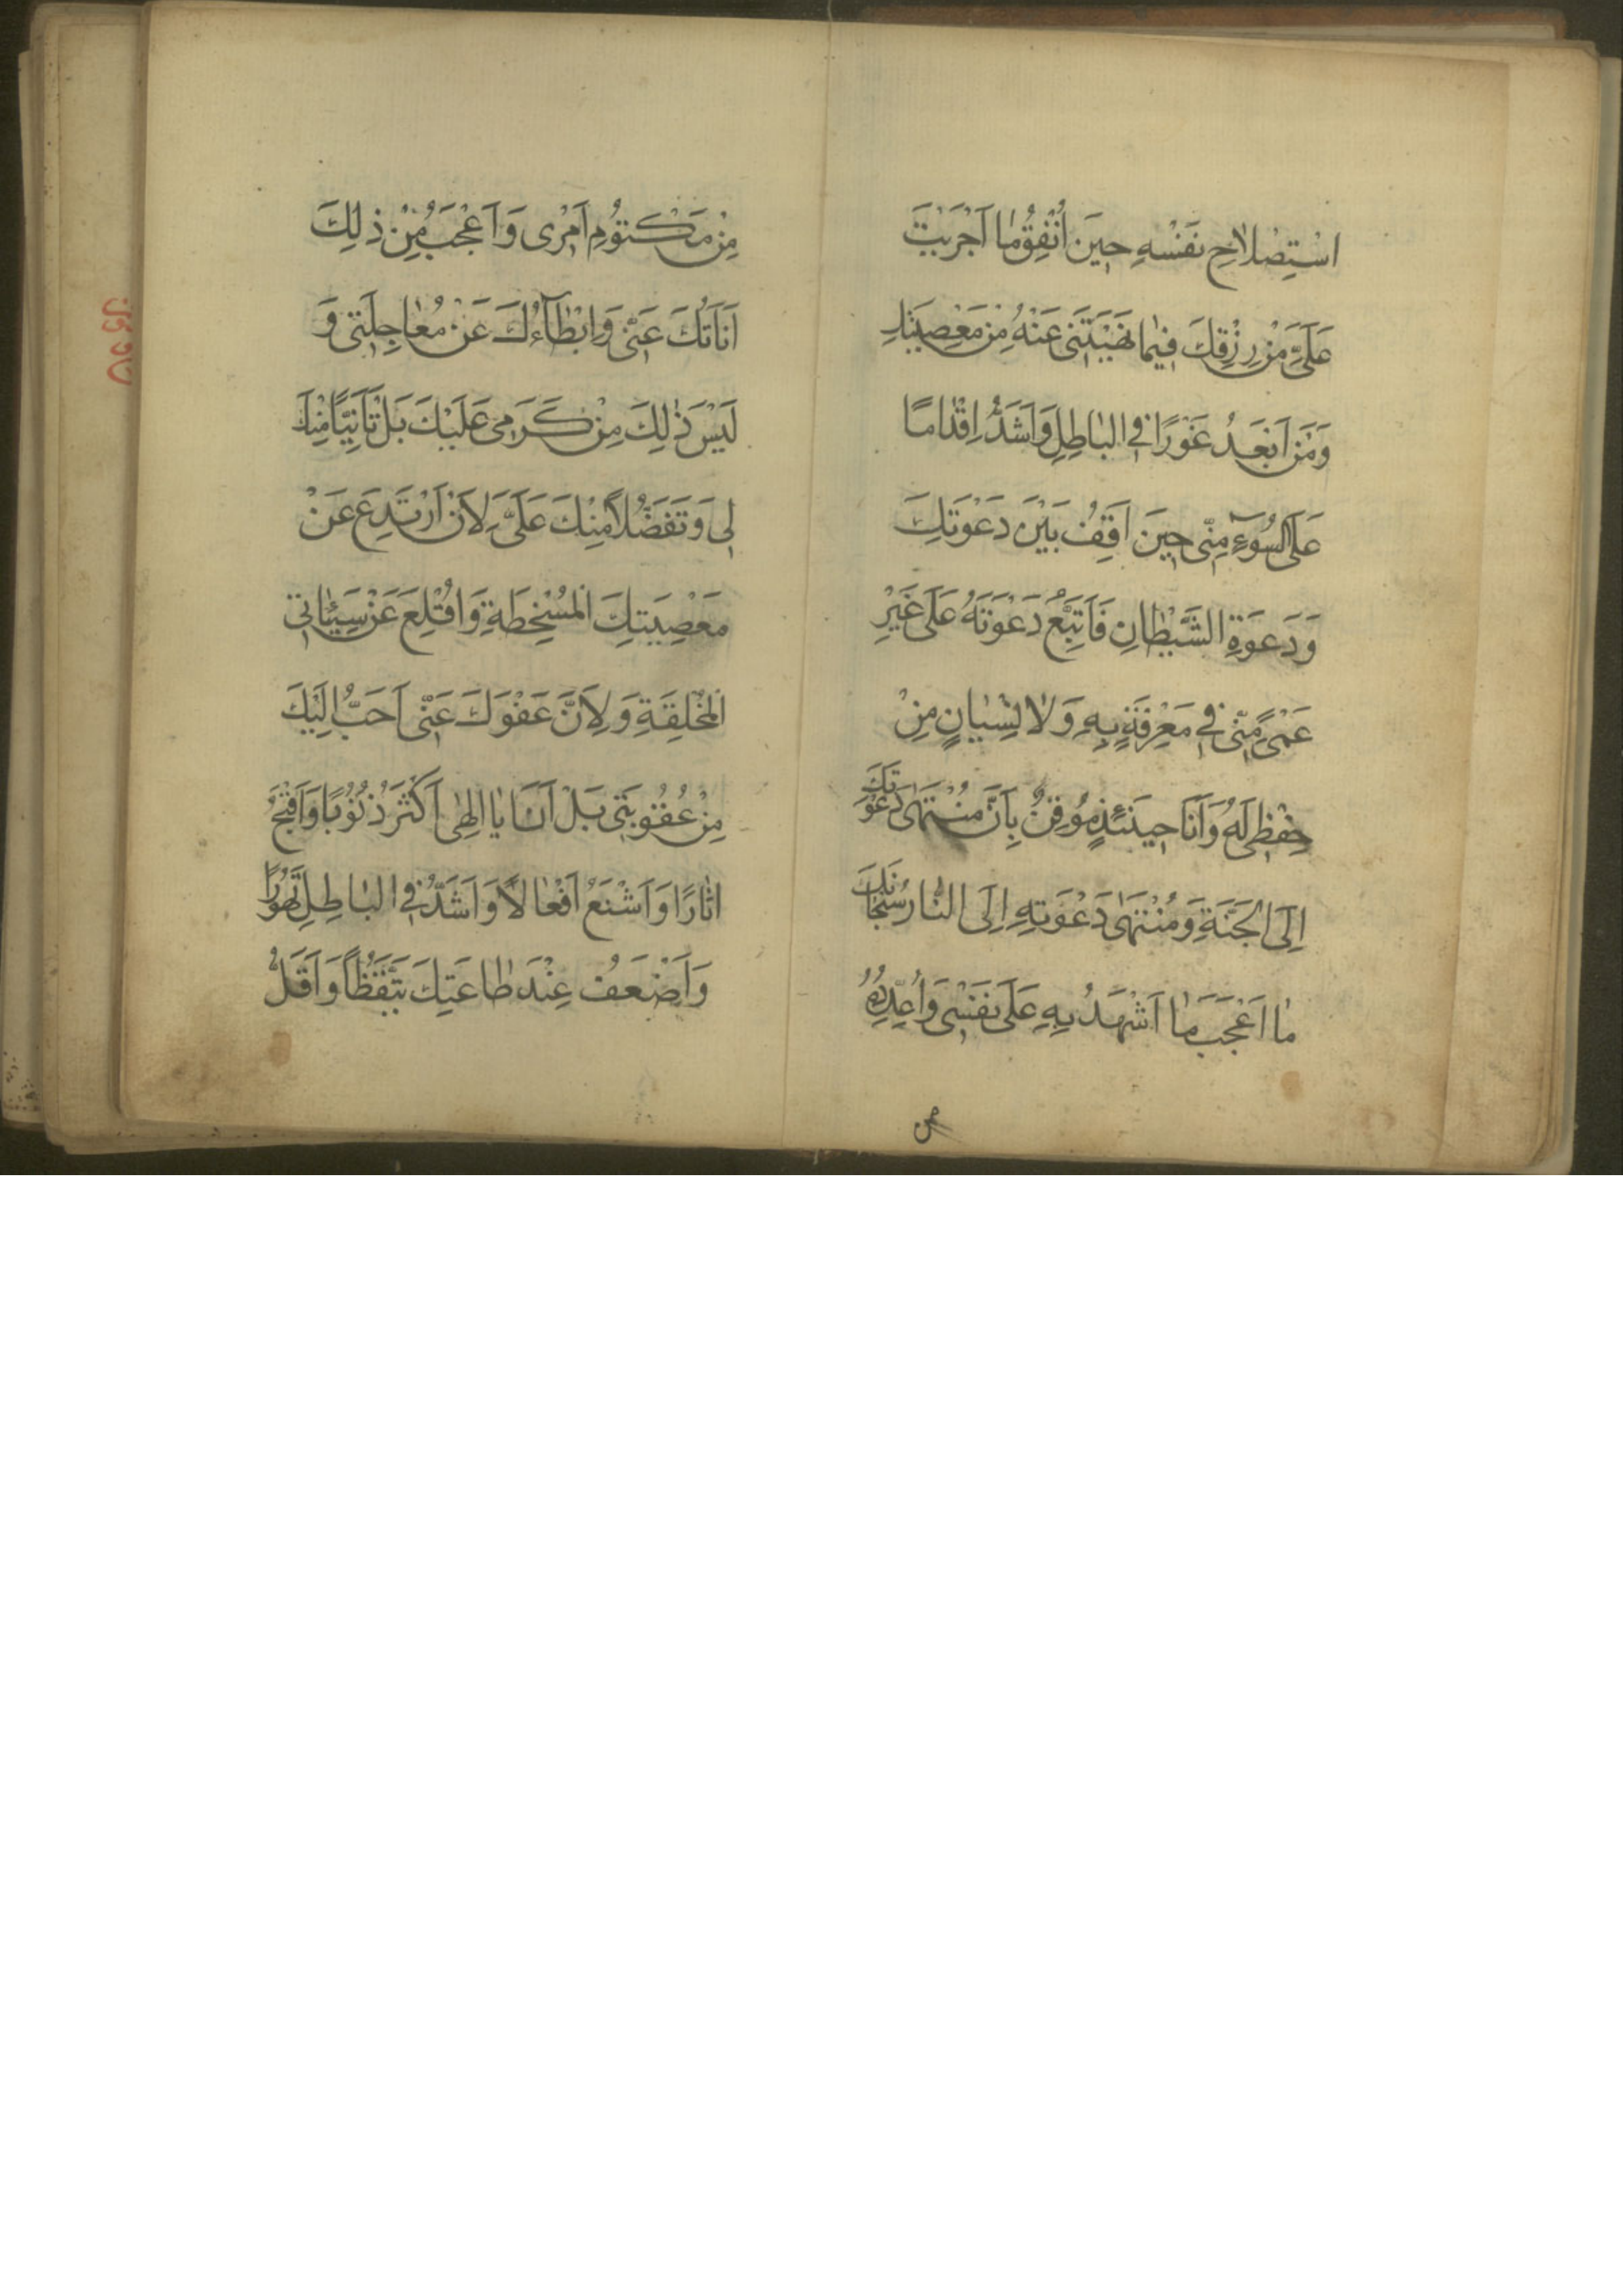 اسْتِصْلاحِ نَفْسِهِ حِينَ اُنْفِقُ مٰا اَجْرَيْتَ
عَلَيَّ مِنْ رِزْقِكَ فِيمٰا نَهَيْتَنِي عَنْهُ مِنْ مَعْصِيَتِكَ
وَمَنْ اَبْعَدُ غَوْرًا فِي البٰاطِلِ وَاَشَدُّ اِقْدٰامًا
عَلَى السُّوۤءِ مِنِّي حِينَ اَقِفُ بَيْنَ دَعْوَتِكَ
وَدَعْوَةِ الشَّيْطٰانِ فَاَتَّبِعُ دَعْوَتَهُ عَلٰى غَيْرِ
عَمًى مِنِّي فِي مَعْرِفَةٍ بِهِ وَلٰا نِسْيٰانٍ مِنْ
حِفْظِي لَهُ وَاَنَا حِينَئِذٍ مُوقِنٌ بِاَنَّ مُنْتَهٰى دَعْوَتِكَ
اِلَى الجَنَّةِ وَمُنْتَهٰى دَعْوَتِهِ اِلَى النّٰارِ سُبْحٰانَكَ
مٰا اَعْجَبَ مٰا اَشْهَدُ بِهِ عَلٰى نَفْسِي وَاُعَدِّدُهُ
مِنْ مَكْتُومِ اَمْرِي وَاَعْجَبُ مِنْ ذٰلِكَ
اَنَاتُكَ عَنِّي وَاِبْطٰآءُكَ عَنْ مُعٰاجِلَتِي وَ
لَيْسَ ذٰلِكَ مِنْ كَرَمِي عَلَيْكَ بَلْ تَاَنِّيًا مِنْكَ
لِي وَتَفَضُّلًا مِنْكَ عَلَيَّ لِاَنْ اَرْتَدِعَ عَنْ
مَعْصِيَتِكَ المُسْخِطَةِ وَاُقْلِعَ عَنْ سَيِّئٰاتِي
المُخْلِقَةِ وَلِاَنَّ عَفْوَكَ عَنِّي اَحَبُّ اِلَيْكَ
مِنْ عُقُوبَتِي بَلْ اَنَا يٰا اِلٰهِي اَكْثَرُ ذُنُوبًا وَاَقْبَحُ
اٰثٰارًا وَاَشْنَعُ اَفْعٰالًا وَاَشَدُّ فِي البٰاطِلِ تَهَوُّرًا
وَاَضْعَفُ عِنْدَ طٰاعَتِكَ تَيَقُّظًا وَاَقَلُّ